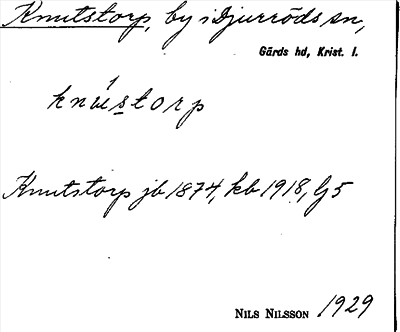 Knutstorp, by i Djurröds sn,
Gärds hd, Krist. l.
knústorp
Knutstorp jb 1874, kb 1918, Lj 5
NILS NILSSON 1929